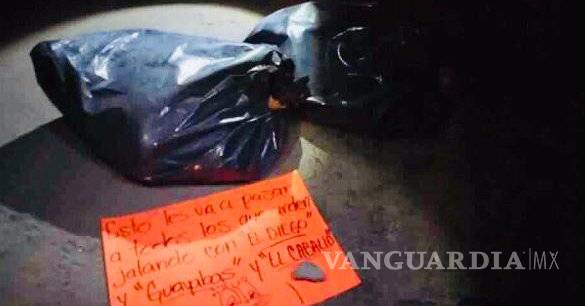 Esto les va a pasar
a todos los que anden
Jalando con EL DIEGO"
y "Guayabas" y "EL CABALLO"
VANGUARDIA|MX